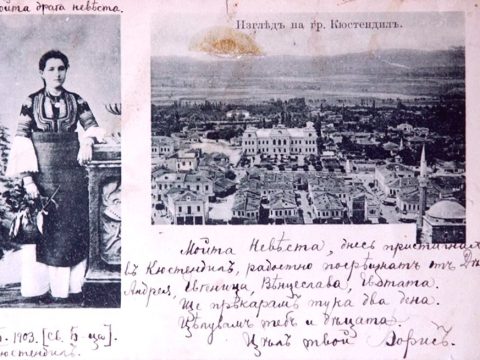 ойта драга невѣста.
Изглѣдъ на гр. Кюстендилъ.
Мойта Невѣста, днесь пристигнах
въ Кюстендилъ, радостно посрѣщнатъ отъ
Андрея, Вѣнцеслава,
Ще прѣкарамъ тука два дена.
Цѣлувамъ тебъ и дѣцата.
Цѣлъ твой Борисъ.
1903. [Св. Б-ца].
юстендилъ.